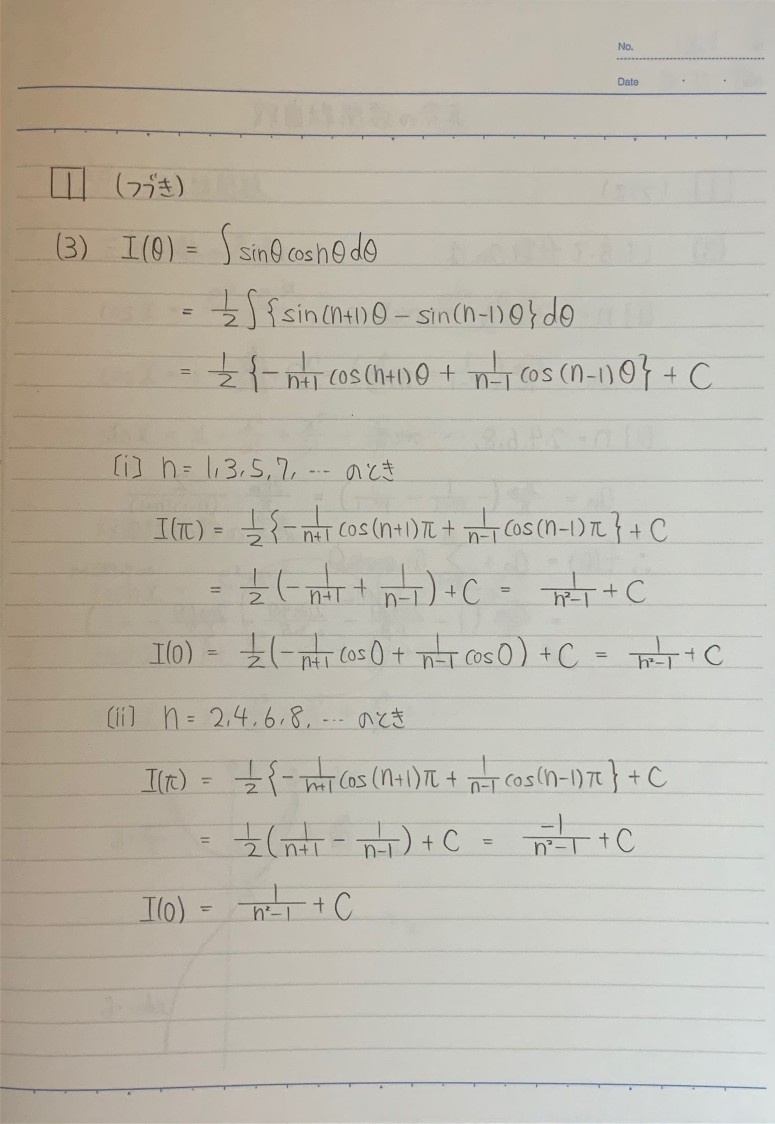 No.
Date
1 (つづき)
(3) I(θ) = ∫ sinθ cosnθ dθ
= 1/2 ∫ {sin(n+1)θ − sin(n-1)θ} dθ
= 1/2 {− 1/(n+1) cos(n+1)θ + 1/(n-1) cos(n-1)θ} + C
[i] n = 1,3,5,7, … のとき
I(π) = 1/2 {− 1/(n+1) cos(n+1)π + 1/(n-1) cos(n-1)π} + C
= 1/2 (− 1/(n+1) + 1/(n-1)) + C = 1/(n²-1) + C
I(0) = 1/2 (− 1/(n+1) cos0 + 1/(n-1) cos0) + C = 1/(n²-1) + C
[ii] n = 2,4,6,8, … のとき
I(π) = 1/2 {− 1/(n+1) cos(n+1)π + 1/(n-1) cos(n-1)π} + C
= 1/2 (1/(n+1) − 1/(n-1)) + C = -1/(n²-1) + C
I(0) = 1/(n²-1) + C